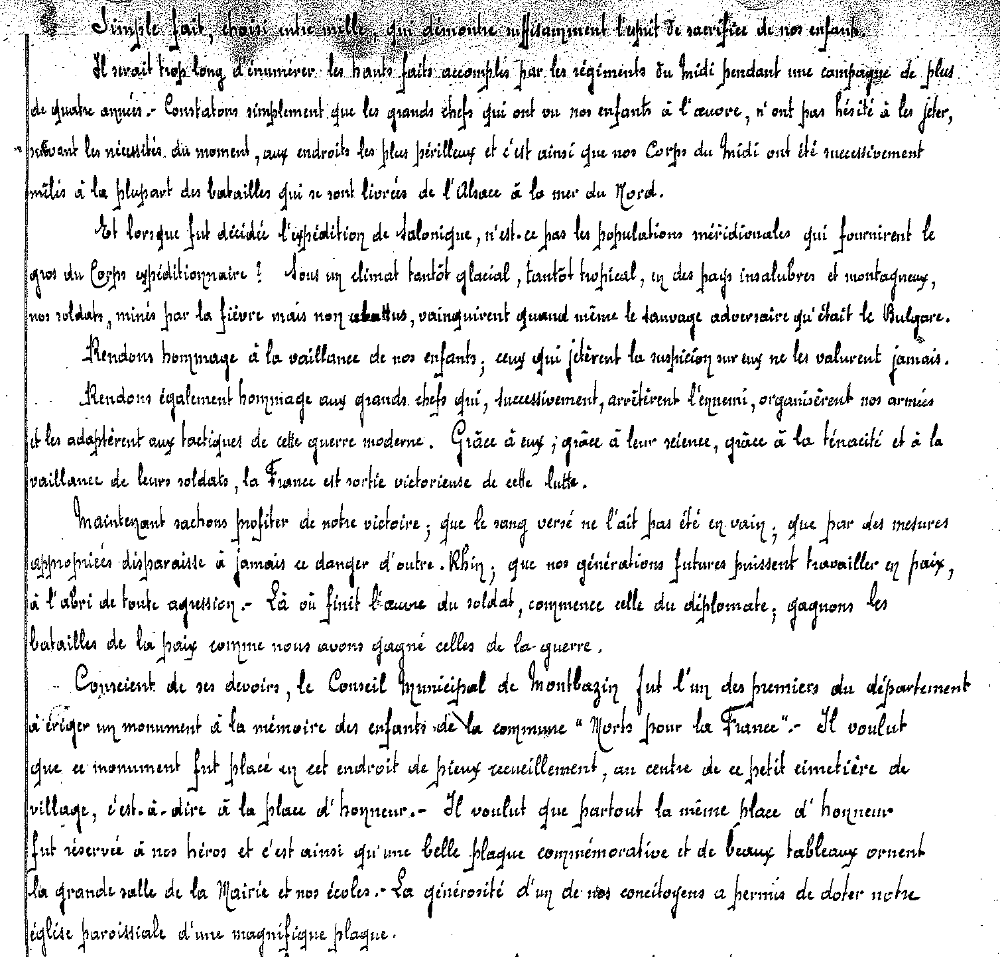 Simple fait, choisi entre mille, qui démontre suffisamment l'esprit de sacrifice de nos enfants.
Il serait trop long d'énumérer les hauts faits accomplis par les régiments du Midi pendant une campagne de plus
de quatre années.- Constatons simplement que les grands chefs qui ont vu nos enfants à l'œuvre, n'ont pas hésité à les jeter,
suivant les nécessités du moment, aux endroits les plus périlleux et c'est ainsi que nos Corps du Midi ont été successivement
mêlés à la plupart des batailles qui se sont livrées de l'Alsace à la mer du Nord.
Et lorsque fut décidée l'expédition de Salonique, n'est-ce pas les populations méridionales qui fournirent le
gros du Corps expéditionnaire ? Sous un climat tantôt glacial, tantôt tropical, en des pays insalubres et montagneux,
nos soldats, minés par la fièvre mais non abattus, vainquirent quand même le sauvage adversaire qu'était le Bulgare.
Rendons hommage à la vaillance de nos enfants ; ceux qui jetèrent la suspicion sur eux ne les valurent jamais.
Rendons également hommage aux grands chefs qui, successivement, arrêtèrent l'ennemi, organisèrent nos armées
et les adaptèrent aux tactiques de cette guerre moderne. Grâce à eux ; grâce à leur science, grâce à la ténacité et à la
vaillance de leurs soldats, la France est sortie victorieuse de cette lutte.
Maintenant sachons profiter de notre victoire ; que le sang versé ne l'ait pas été en vain ; que par des mesures
appropriées disparaisse à jamais ce danger d'outre-Rhin ; que nos générations futures puissent travailler en paix,
à l'abri de toute agression.- Là où finit l'œuvre du soldat, commence celle du diplomate ; gagnons les
batailles de la paix comme nous avons gagné celles de la guerre.
Conscient de ses devoirs, le Conseil Municipal de Montbazin fut l'un des premiers du département
à ériger un monument à la mémoire des enfants de la commune "Morts pour la France".- Il voulut
que ce monument fut placé en cet endroit de pieux recueillement, au centre de ce petit cimetière de
village, c'est-à-dire à la place d'honneur.- Il voulut que partout la même place d'honneur
fut réservée à nos héros et c'est ainsi qu'une belle plaque commémorative et de beaux tableaux ornent
la grande salle de la Mairie et nos écoles.- La générosité d'un de nos concitoyens a permis de doter notre
église paroissiale d'une magnifique plaque.